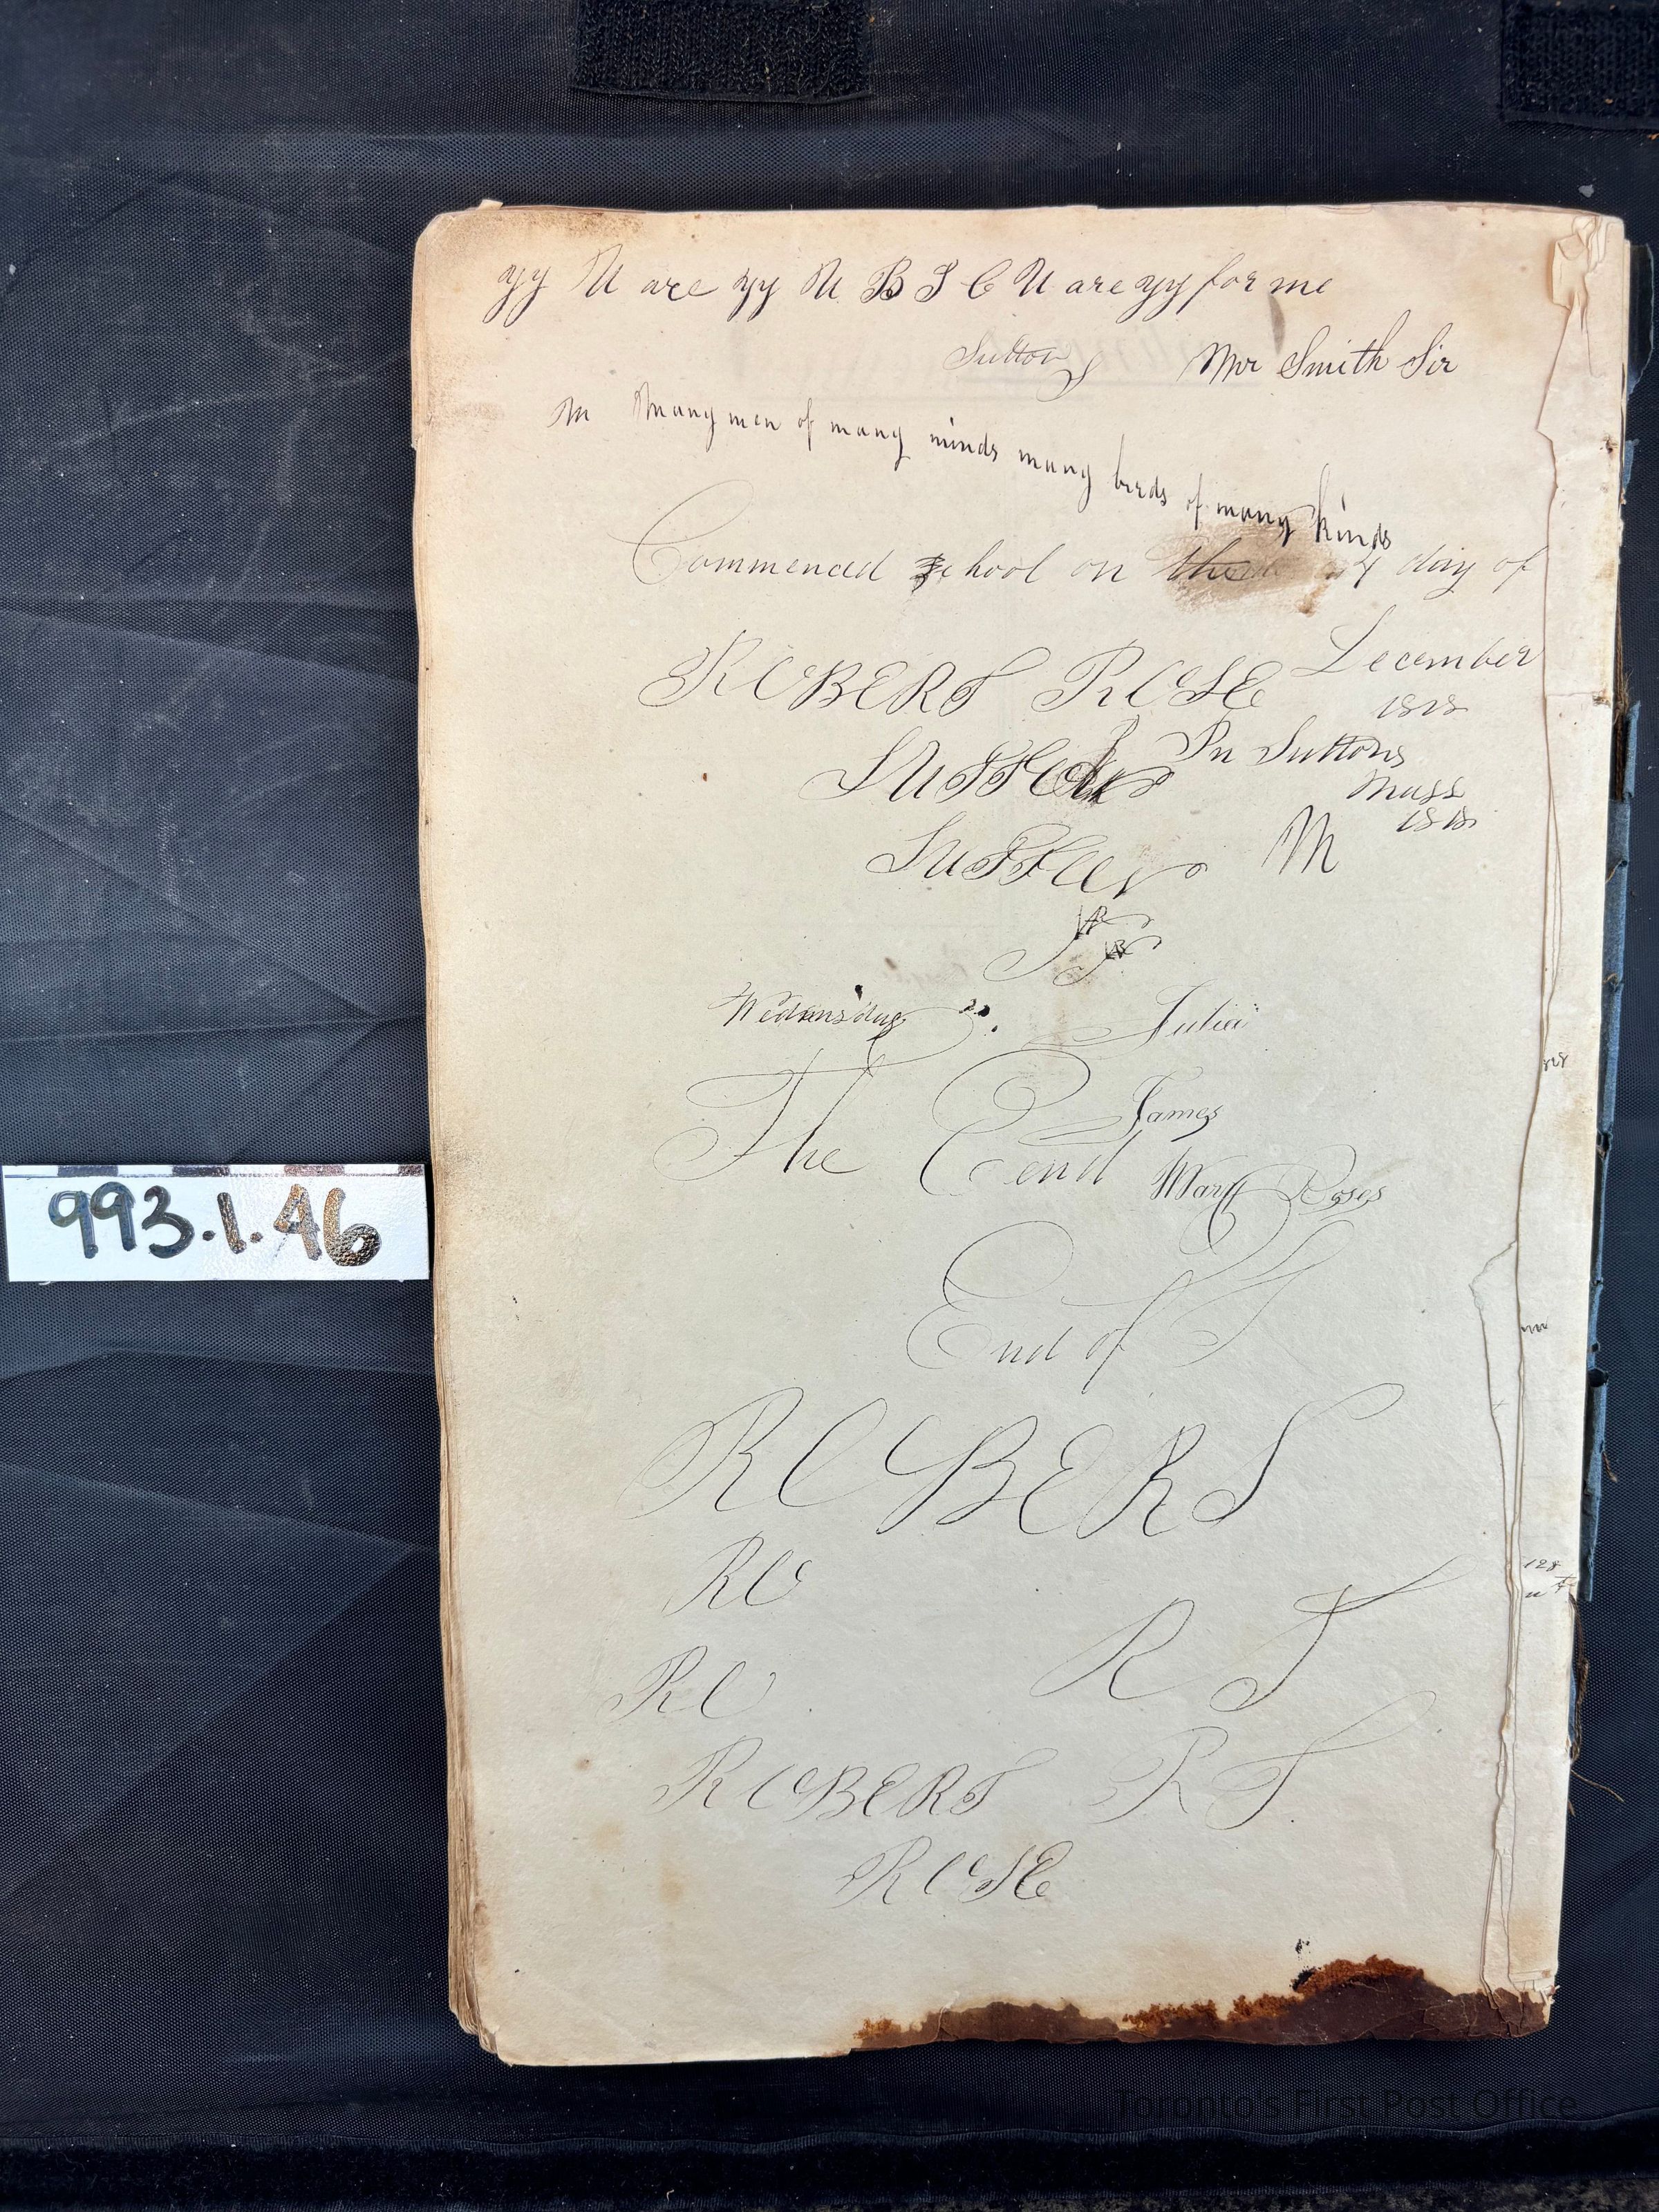 yy U are yy U B I C U are yy for me
Sutton
Mr Smith Sir
M Many men of many minds many birds of many kinds
Commenced School on the 4 day of
December
1818
ROBERT ROSE
In Suttons
Mass
1818
SUTTON
SUTTON
M
Wedensday
Julia
The End
James
Mary Roses
End of
ROBERT
RO
R T
RO
ROBERT R T
ROSE
128
993.1.46
Toronto's First Post Office